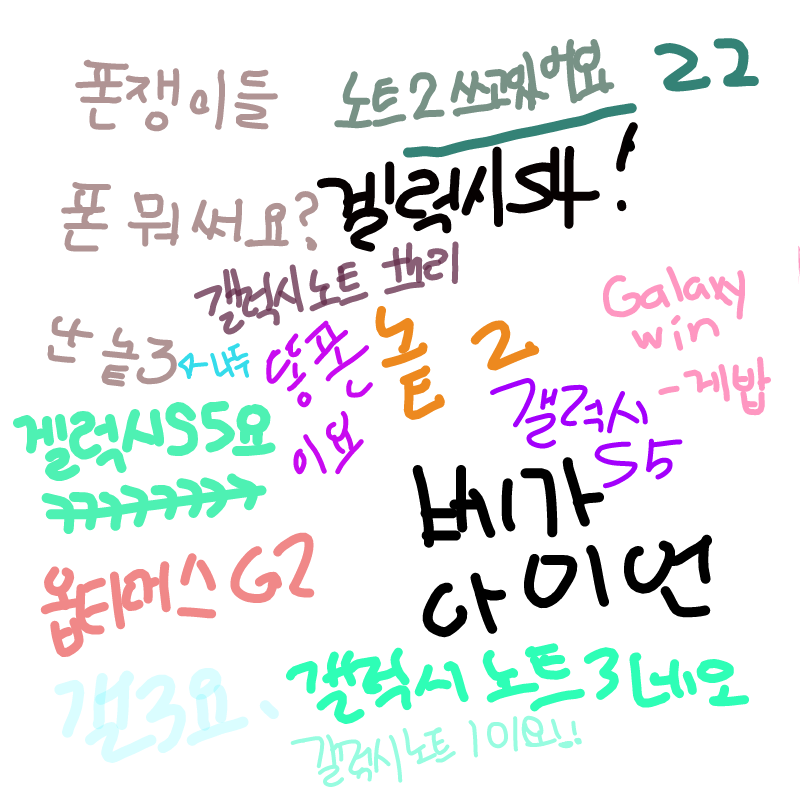 폰쟁이들
노트2 쓰고있어요
22
폰 뭐써요?
겔럭시S4!
갤럭시노트 쓰리
Galaxy
win
-게밥
난 놑3
←나두
똥폰
이요
놑 2
갤럭시
S5
겔럭시S5요
ㅋㅋㅋㅋㅋㅋㅋㅋ
베가
아이언
옵티머스G2
갤3요.
갤럭시 노트3네오
갤럭시노트1이요!!